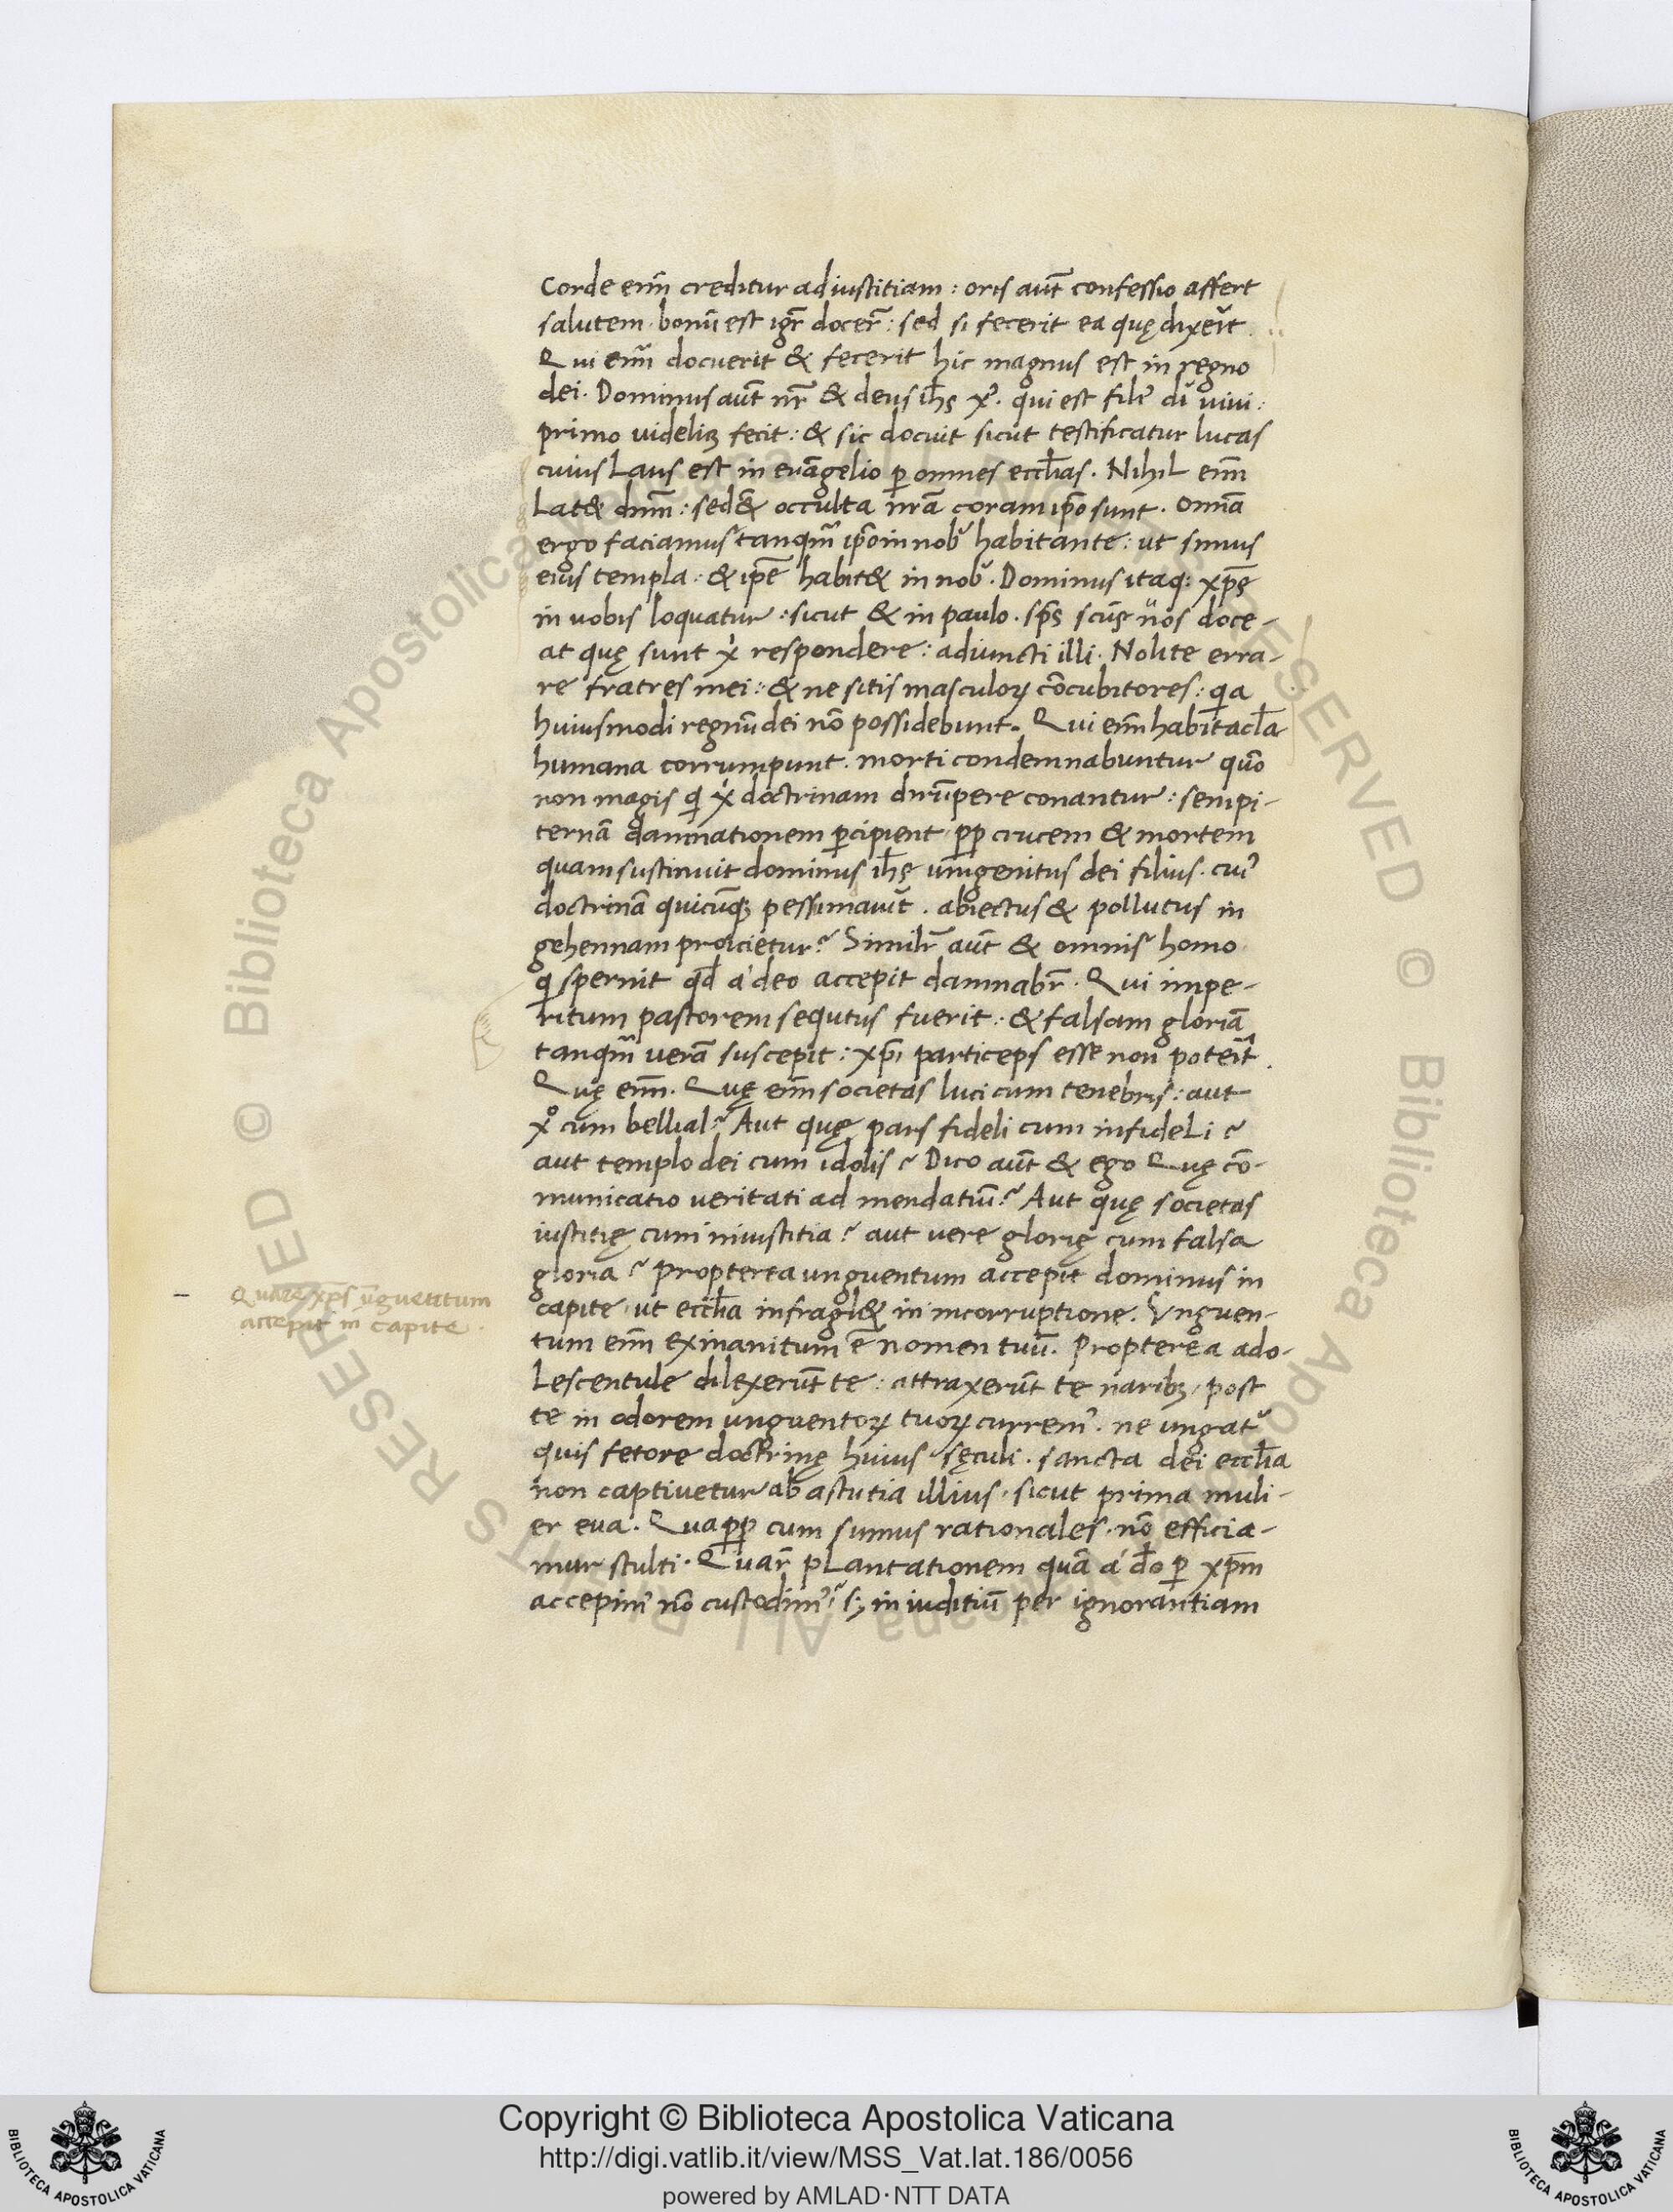 Corde eni̅m creditur ad iustitiam : oris aut̅ confessio affert
salutem · bonu̅ est igr̅ docer̅ : sed si fecerit ea quę dixeu̅t .
Qui eni̅m docuerit & fecerit hic magnus est in regno
dei · Dominus aut̅ nr̅ & deus ih̅s x᷒ · qui est fili᷒ di̅ uiui :
primo uidelicꝫ fecit : & sic docuit sicut testificatur lucas
cuius Laus est in eua̅gelio ꝑ omnes eccl̅ias . NihiL eni̅m
Lat& dnm̅ : sed & occulta nr̅a coram ip̅o sunt . omnia̅
ergo faciamus tanqm̅ ip̅o in nob᷒ habitante : ut simus
eius templa : & ip̅e habit& in nob᷒ . Dominus itaq: xp̅s
in uobis loquatur : sicut & in paulo . sp̅s sc̅us uos doce-
at quę sunt xi̅ respondere : adiuncti illi . Nolite erra-
re fratres mei : & ne sitis masculoꝝ co̅cubitores : qia
huiusmodi regnu̅ dei no̅ possidebunt . Qui eni̅m habitacl̅a
humana corrumpunt . morti condemnabuntur quo̅
non magis qi xi̅ doctrinam dirumpere conantur : sempi-
terna̅ damnationem ꝑcipient · ꝓp̅ crucem & mortem
quam sustinuit dominus ih̅s unigenitus dei filius . cui᷒
doctrina̅ quicu̅qꝫ pessimauit̅ . abiectus & pollutus in
gehennam proicietur ? Simil̅r aut̅ & omnis homo
qi spernit qd̅ a' deo accepit damnabr̅ . Qui impe-
ritum pastorem sequtus fuerit : & falsam gloria̅
tanqm̅ uera̅ suscepit : xp̅i particeps esse non poteit̅ .
Quę eni̅m . Quę eni̅m societas luci cum tenebris : aut
xº cum bellial ? Aut quę pars fideli cum infideLi ?
aut templo dei cum idolis ? Dico aut̅ & ego Quę co̅-
municatio ueritati ad mendatiu̅ ? Aut quę societas
iustitię cum iniustitia ? aut uere glorię cum falsa
gloria ? Propterea unguentum accepit dominus in
capite · ut eccl̅ia infragl& in incorruptione . Vnguen-
tum eni̅m exinanitum e̅ nomen tuu̅ . Propterea ado-
Lescentule dilexeru̅t te : attraxeru̅t te naribꝫ · post
te in odorem unguentoꝝ tuoꝝ currem᷒ . ne ungat᷒
quis fetore doctrinę huius sęculi . sancta dei eccl̅ia
non captiuetur ab astutia illius · sicut prima muli-
er eua . Quaꝓp̅ cum sumus rationales · no̅ efficia-
mur stulti · Quar̅ pLantationem qua̅ a' do̅ ꝑ xp̅m
accepim᷒ no̅ custodim᷒ · sꝫ in iuditiu̅ per ignorantiam
Quare xp̅s u̅guentum
accepit in capite .
© Biblioteca Apostolica Vaticana ALL RIGHTS RESERVED
Copyright © Biblioteca Apostolica Vaticana
http://digi.vatlib.it/view/MSS_Vat.lat.186/0056
powered by AMLAD·NTT DATA
BIBLIOTECA APOSTOLICA VATICANA
BIBLIOTECA APOSTOLICA VATICANA